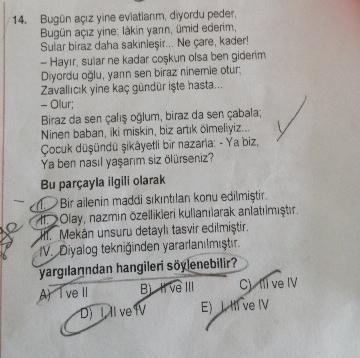 14. Bugün açız yine evlatlarım, diyordu peder,
Bugün açız yine; lâkin yarın, ümid ederim,
Sular biraz daha sakinleşir... Ne çare, kader!
– Hayır, sular ne kadar coşkun olsa ben giderim
Diyordu oğlu, yarın sen biraz ninemle otur;
Zavallıcık yine kaç gündür işte hasta...
– Olur;
Biraz da sen çalış oğlum, biraz da sen çabala;
Ninen baban, iki miskin, biz artık ölmeliyiz...
Çocuk düşündü şikâyetli bir nazarla: - Ya biz,
Ya ben nasıl yaşarım siz ölürseniz?
Bu parçayla ilgili olarak
I. Bir ailenin maddi sıkıntıları konu edilmiştir.
II. Olay, nazmın özellikleri kullanılarak anlatılmıştır.
III. Mekân unsuru detaylı tasvir edilmiştir.
IV. Diyalog tekniğinden yararlanılmıştır.
yargılarından hangileri söylenebilir?
A) I ve II B) II ve III C) III ve IV
D) I, II ve IV E) I, III ve IV